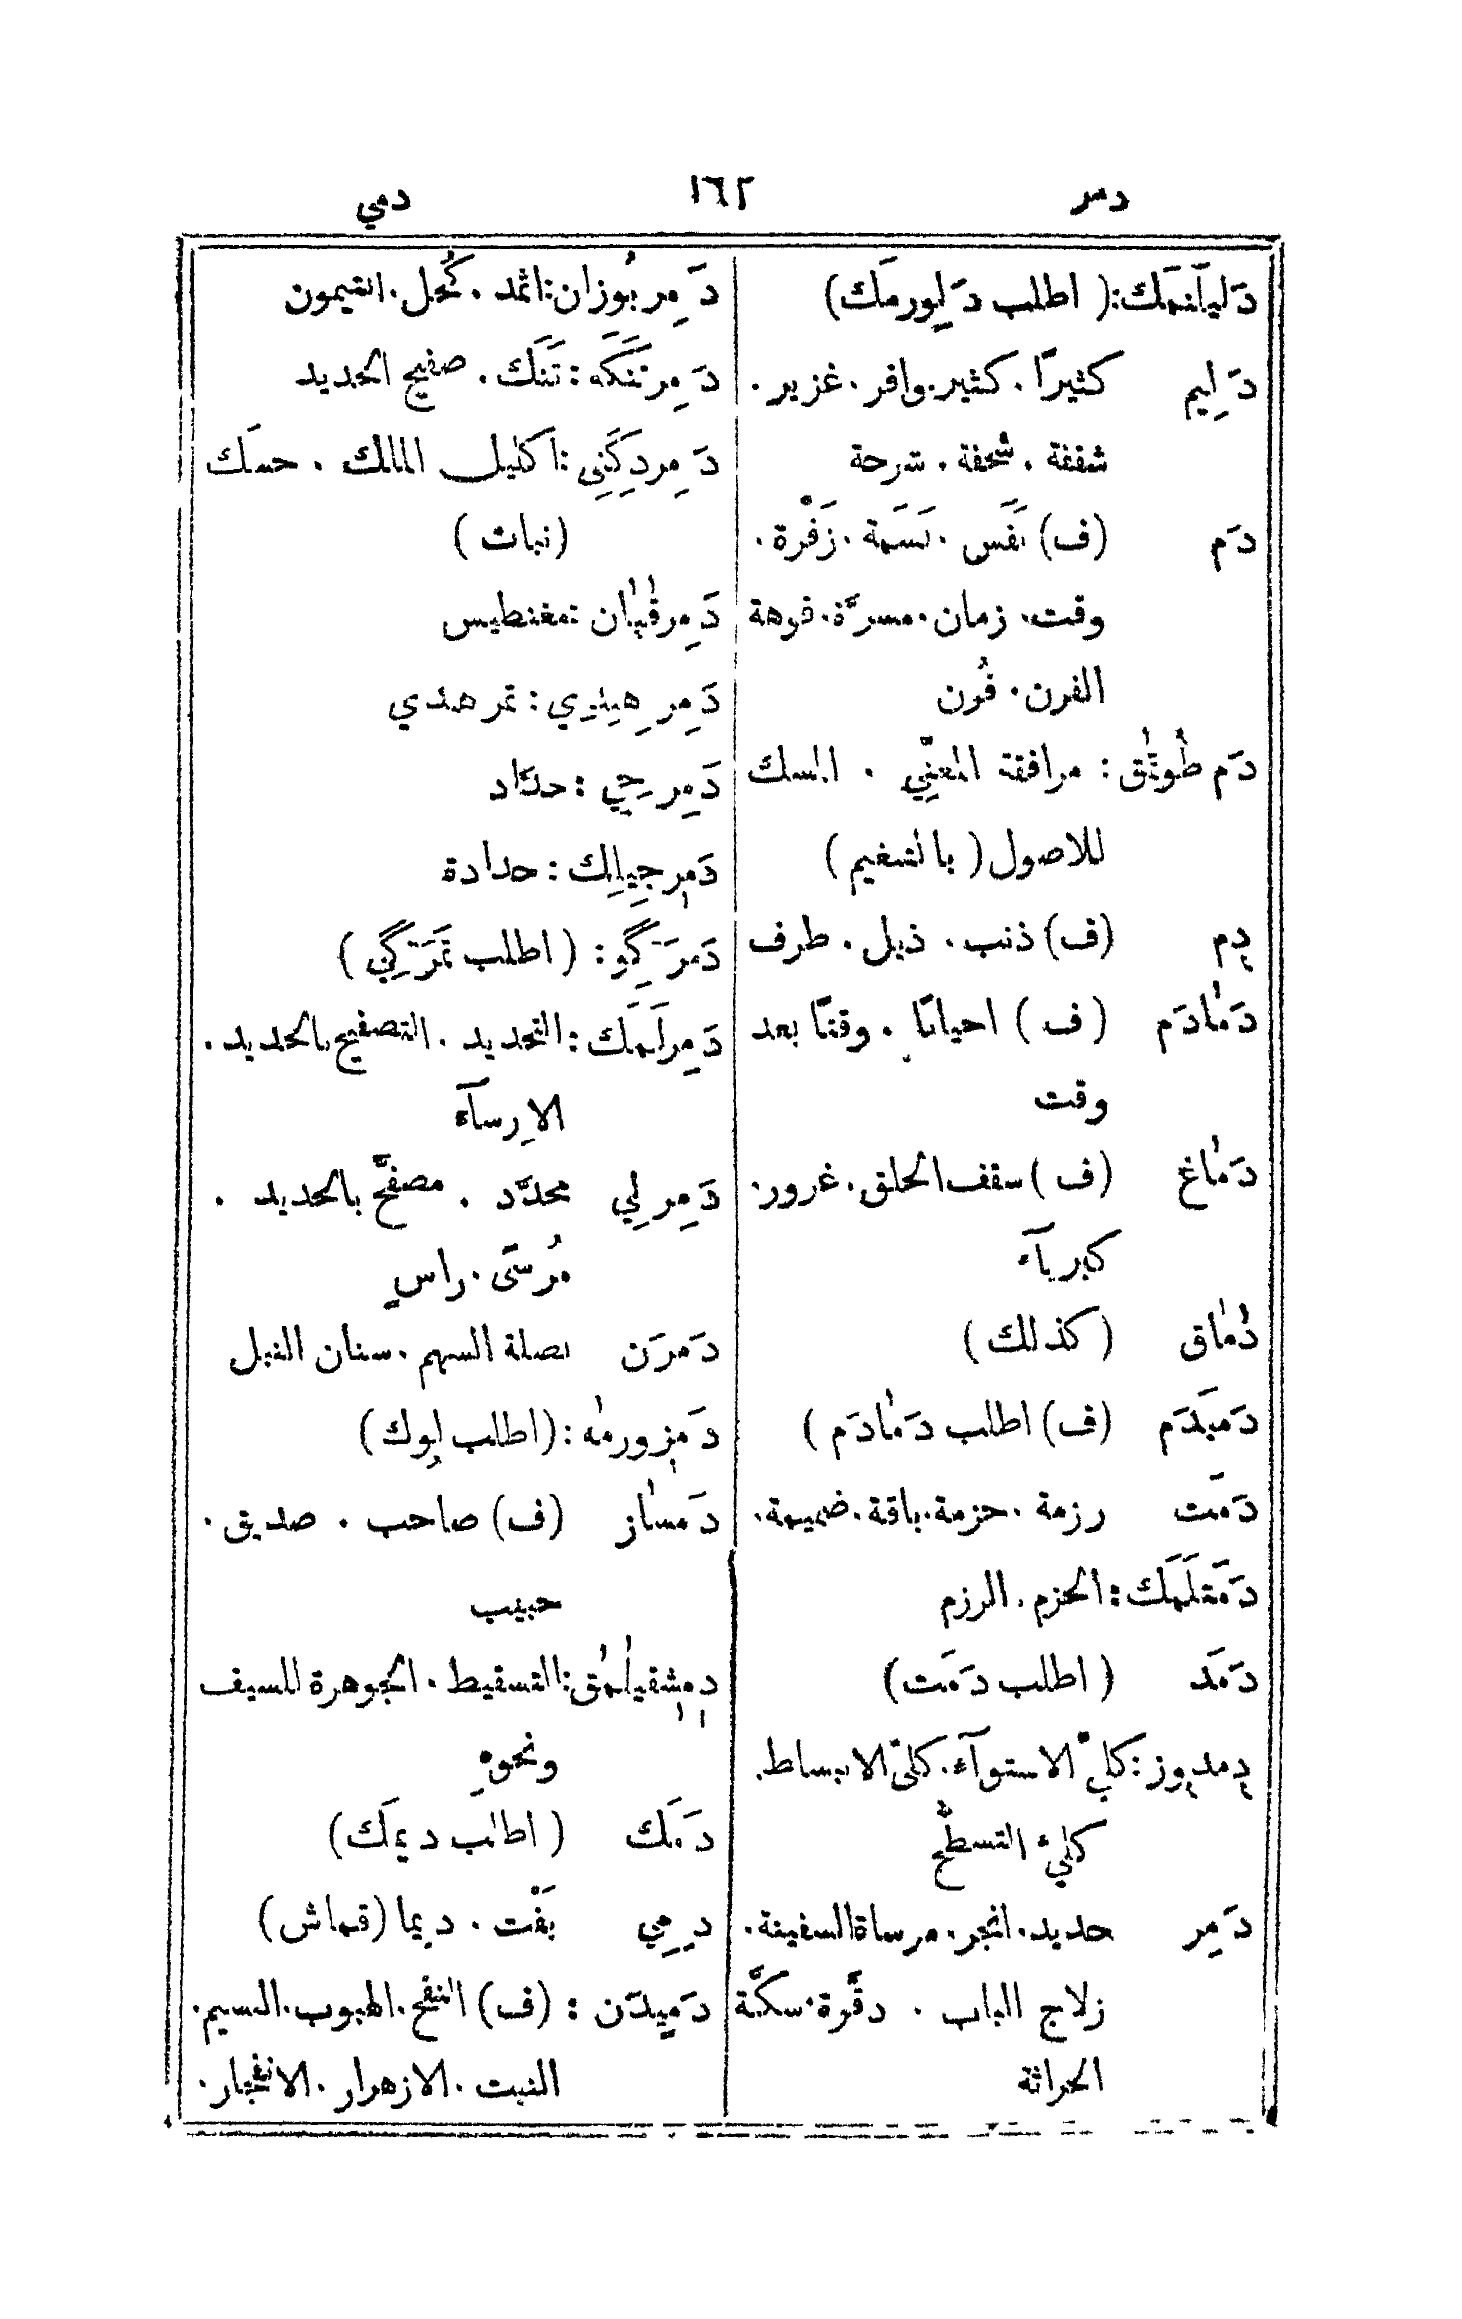 دمر ١٦٢ دمي
دَليآنمَك: ( اطلب دَ لِيورمَك)
دَ لِيم كثيرًا . كثير . وافر . غزير .
شقفة . شحفة . شرحة
دَم (ف) نَفَس . نَسَمة . زَفْرة .
وقت . زمان . مسرَّة . فوهة
الفرن . فُون
دَم طُوتْق : مرافقة المغنّي . المسك
للاصول ( بالتنغيم )
دم (ف) ذنب . ذيل . طرف
دَمادَم ( ف ) احيانًا . وقتًا بعد
وقت
دَماغ (ف ) سقف الحلق . غرور .
كبريآء
دُماق ( كذلك )
دَمبَدَم (ف) اطلب دَمادَم )
دَمَت رزمة . حزمة . باقة . ضميمة .
دَمَتلَمَك : الحزم . الرزم
دَمَد ( اطلب دَمَت )
دمدوز : كلّي الاستوآء . كلّي الانبساط .
كليّ التسطّح
دَمِر حديد . انجر . مرساة السفينة .
زلاج الباب . دقَّرة . سكَّة
الحراثة
دَمِر بُوزان : اثمد . كُحل . انتيمون
دَمِر تَنَكَه : تَنَك . صفيح الحديد
دَمِر دِكَنِي : اكليل المالك . حسَك
(نبات )
دَمِرقپان : مغنطيس
دَمِر هِندِي : تمر هندي
دَمِرجِي : حدَّاد
دَمِرجِيلِك : حدادة
دَمرَ كِو : ( اطلب تَمَرَ كِي )
دَمِرلَمَك : التحديد . التصفيح بالحديد .
الاِرسآء
دَمِر لِي محدَّد . مصفَّح بالحديد .
مُرسَى . راسٍ
دَمرَن نصلة السهم . سنان النبل
دَمزورمه : ( اطلب لبوك )
دَمساز (ف) صاحب . صديق .
حبيب
دمشقيلمق : التسقيط . الجوهرة للسيف
ونحوهِ
دَمَك ( اطلب ديمَك )
دِمِي بَفْت . ديما (قماش )
دَمِيدَن : (ف) النفخ . الهبوب . النسيم .
النبت . الازهرار . الانفجار .